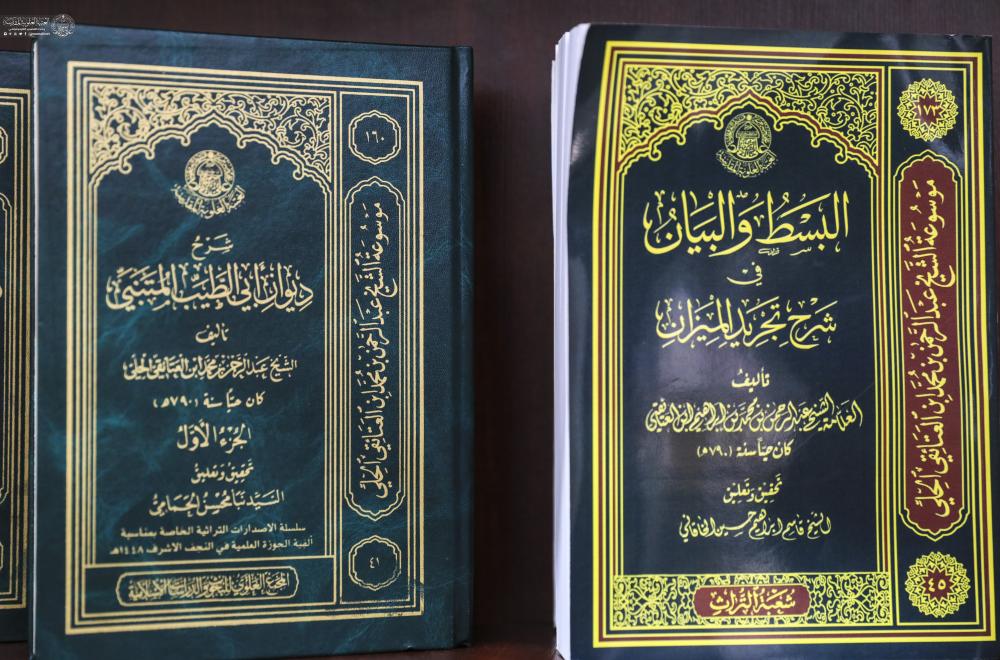 العتبة العلوية المقدسة
١٦٠
موسوعة الشيخ عبد الرحمن بن محمد ابن العتائقي الحلي
٤١
شَرحُ
ديوان أبي الطيّب المتنبي
تأليف
الشيخ عبد الرحمن بن محمد ابن العتائقي الحلي
كان حيّاً سنة (٧٩٠هـ)
الجزء الأول
تحقيق وتعليق
السيد نبأ محسن الحمامي
سلسلة الاصدارات التراثية الخاصة بمناسبة
ألفية الحوزة العلمية في النجف الاشرف ١٤٤٨هـ
البسط والبيان
في
شرح تجريد الميزان
تأليف
العلامة الشيخ عبد الرحمن بن محمد بن ابراهيم ابن العتائقي
كان حيّاً سنة (٧٩٠هـ)
تحقيق وتعليق
الشيخ قاسم ابراهيم حسين الخاقاني
شعبة التراث
موسوعة الشيخ عبد الرحمن بن محمد ابن العتائقي الحلي
٤٥